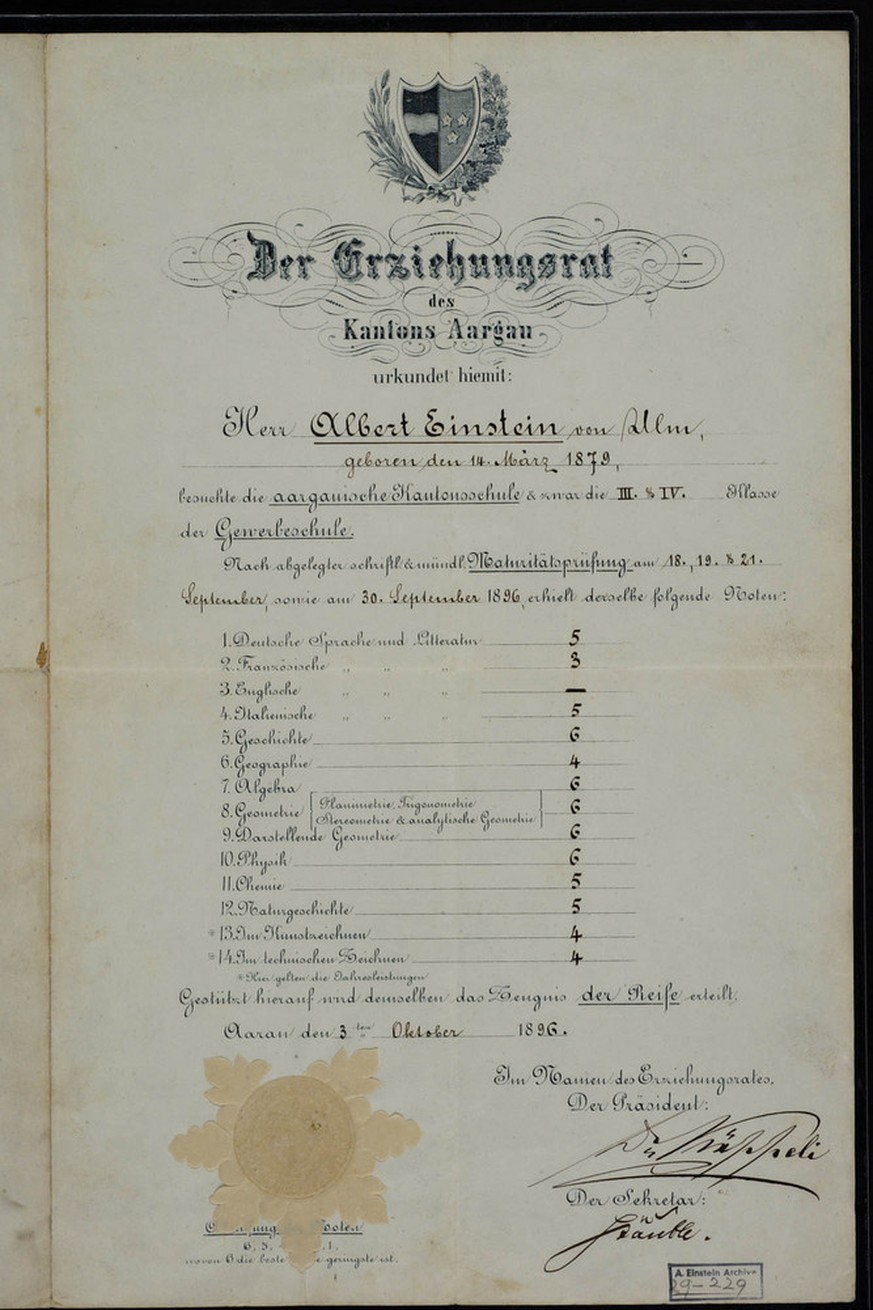 Der Erziehungsrat
des
Kantons Aargau
urkundet hiemit:
Herr Albert Einstein von Ulm,
geboren den 14. März 1879,
besuchte die aargauische Kantonsschule & zwar die III. & IV. Klasse
der Gewerbeschule.
Nach abgelegter schriftl. & mündl. Maturitätsprüfung am 18., 19. & 21.
September, sowie am 30. September 1896, erhielt derselbe folgende Noten:
1. Deutsche Sprache und Litteratur 5
2. Französische „ „ „ 3
3. Englische „ „ „ —
4. Italienische „ „ „ 5
5. Geschichte 6
6. Geographie 4
7. Algebra 6
8. Geometrie Planimetrie, Trigonometrie 6
Stereometrie & analytische Geometrie
9. Darstellende Geometrie 6
10. Physik 6
11. Chemie 5
12. Naturgeschichte 5
* 13. Im Kunstzeichnen 4
* 14. Im technischen Zeichnen 4
* Hier gelten die Jahresleistungen
Gestützt hierauf wird demselben das Zeugnis der Reife erteilt.
Aarau den 3ten Oktober 1896.
Im Namen des Erziehungsrates,
Der Präsident:
Dr. Käppeli
Der Sekretär:
Stäuble.
Noten
6, 5, 1.
wovon 6 die beste geringste ist.
A. Einstein Archive
29-229